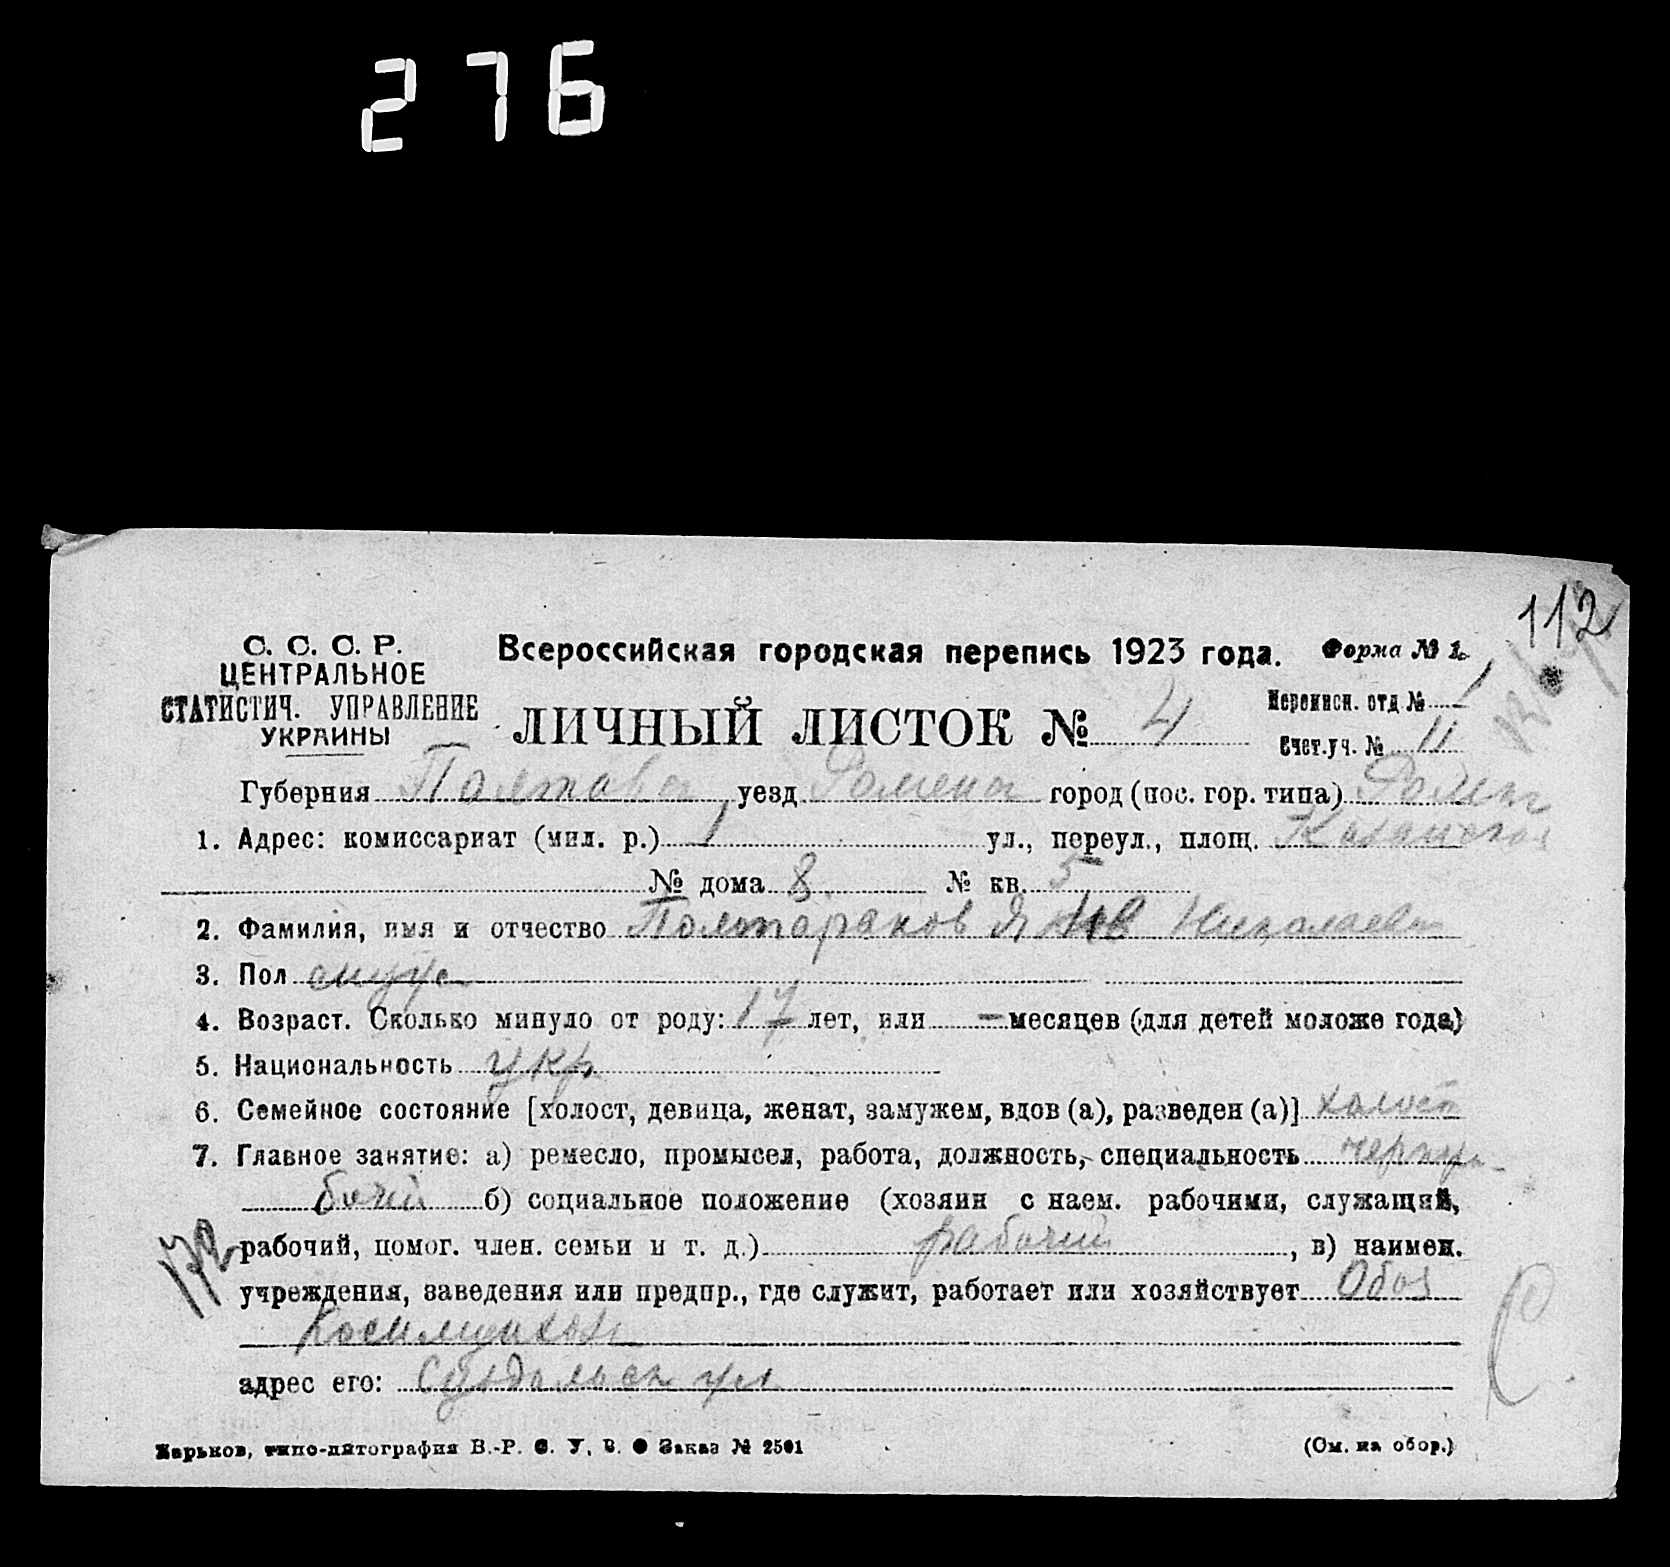 276
112
С. С. С. Р.
ЦЕНТРАЛЬНОЕ
СТАТИСТИЧ. УПРАВЛЕНИЕ
УКРАИНЫ
Всероссийская городская перепись 1923 года.
Форма № 1.
ЛИЧНЫЙ ЛИСТОК № 4
Переписн. отд. № 1
Счет. уч. № 11
Губерния Полтавск уезд Роменск город (пос. гор. типа) Ромен
1. Адрес: комиссариат (мил. р.) 1 ул., переул., площ.
№ дома 8 № кв. 5
2. Фамилия, имя и отчество Полтораков Николаев
3. Пол муж
4. Возраст. Сколько минуло от роду: 17 лет, или — месяцев (для детей моложе года)
5. Национальность укр
6. Семейное состояние [холост, девица, женат, замужем, вдов (а), разведен (а)] холост
7. Главное занятие: а) ремесло, промысел, работа, должность, специальность чернора-
бочий б) социальное положение (хозяин с наем. рабочими, служащий,
172
рабочий, помог. член. семьи и т. д.) рабочий, в) наимен.
учреждения, заведения или предпр., где служит, работает или хозяйствует
адрес его: Суздальск ул
Харьков, типо-литография В.-Р. С. У. В. Заказ № 2501
(См. на обор.)